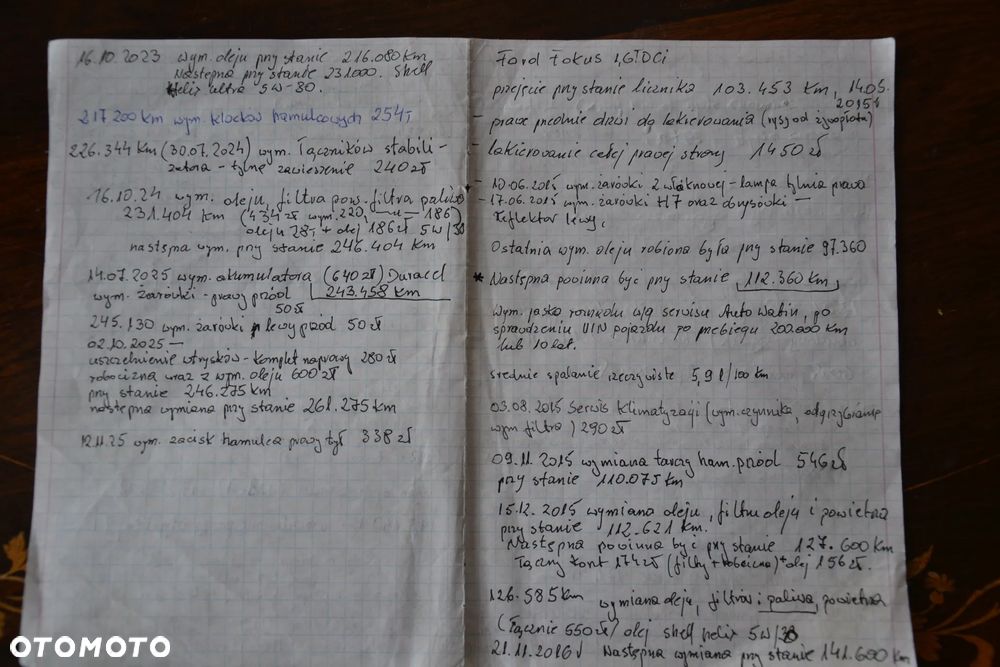 16.10.2023 wym. oleju przy stanie 216.080 km
Następna przy stanie 231000. Shell
Helix ultra 5W-30.
217 200 km wym. klocków hamulcowych 254,-
226.344 km (30.07.2024) wym. łączników stabili-
zatora - tylne zawieszenie 240 zł
16.10.24 wym. oleju, filtra pow. filtra paliwa
231.404 km (434 zł wym. 220,- 186)
oleju 28,- + olej 186 zł 5W/30
następna wym. przy stanie 246.404 km
14.07.2025 wym. akumulatora (640 zł) Duracell
wym. żarówki - prawy przód 243.458 km
50 zł
245.130 wym. żarówki lewy przód 50 zł
02.10.2025 —
uszczelnienie wtrysków - komplet naprawy 280 zł
robocizna wraz z wym. oleju 600 zł
przy stanie 246.275 km
następna wymiana przy stanie 261.275 km
12.11.25 wym. zacisk hamulca prawy tył 338 zł
Ford Fokus 1,6TDCi
przejęcie przy stanie licznika 103.453 km, 14.05.
2015 r
- prawe przednie drzwi do lakierowania (rysy od żywopłotu)
- lakierowanie całej prawej strony 1450 zł
- 10.06.2015 wym. żarówki 2 włóknowej - lampa tylnia prawa
- 17.06.2015 wym. żarówki H7 oraz dwysówki —
reflektor lewy,
Ostatnia wym. oleju robiona była przy stanie 97.360
* Następna powinna być przy stanie 112.360 km,
Wym. paska rozrządu wg serwisu Auto Wabin, po
sprawdzeniu VIN pojazdu po przebiegu 200.000 km
lub 10 lat.
średnie spalanie rzeczywiste 5,9 l/100 km
03.08.2015 Serwis Klimatyzacji (wym. czynnika, odgrzybianie
wym filtra) 290 zł
09.11.2015 wymiana tarczy ham. przód 546 zł
przy stanie 110.075 km
15.12.2015 wymiana oleju, filtru oleju i powietrza
przy stanie 112.621 km.
Następna powinna być przy stanie 127.600 km
Łączny koszt 174 zł (filtry + robocizna) + olej 156 zł.
126.585 km wymiana oleju, filtrów i paliwa, powietrza
(łącznie 550 zł) olej shell helix 5W/30
21.11.2016 r Następna wymiana przy stanie 141.600 km
OTOMOTO